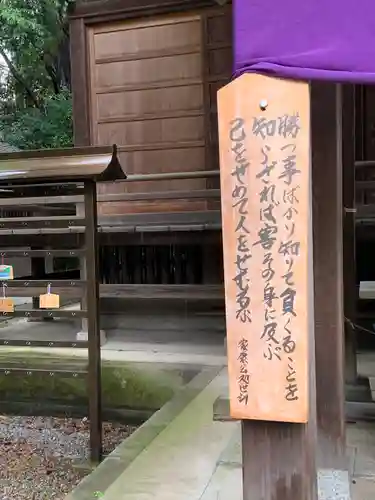 勝つ事ばかり知りて負くることを
知らざれば害その身に及ぶ
己をせめて人をせむるな
家康公処世訓